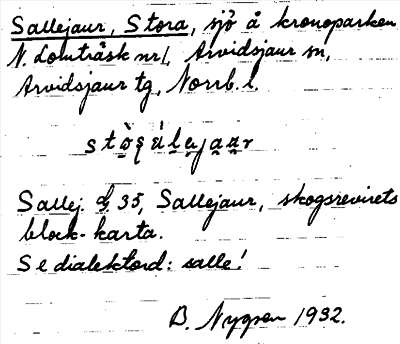 Sallejaur, Stora, sjö å kronoparken
N. Lomträsk nr 1, Arvidsjaur sn,
Arvidsjaur tg, Norrb. l.
Sallej. 35, Sallejaur, skogsrevirets
block-karta.
Se dialektord: salle!
B. Nygren 1932.